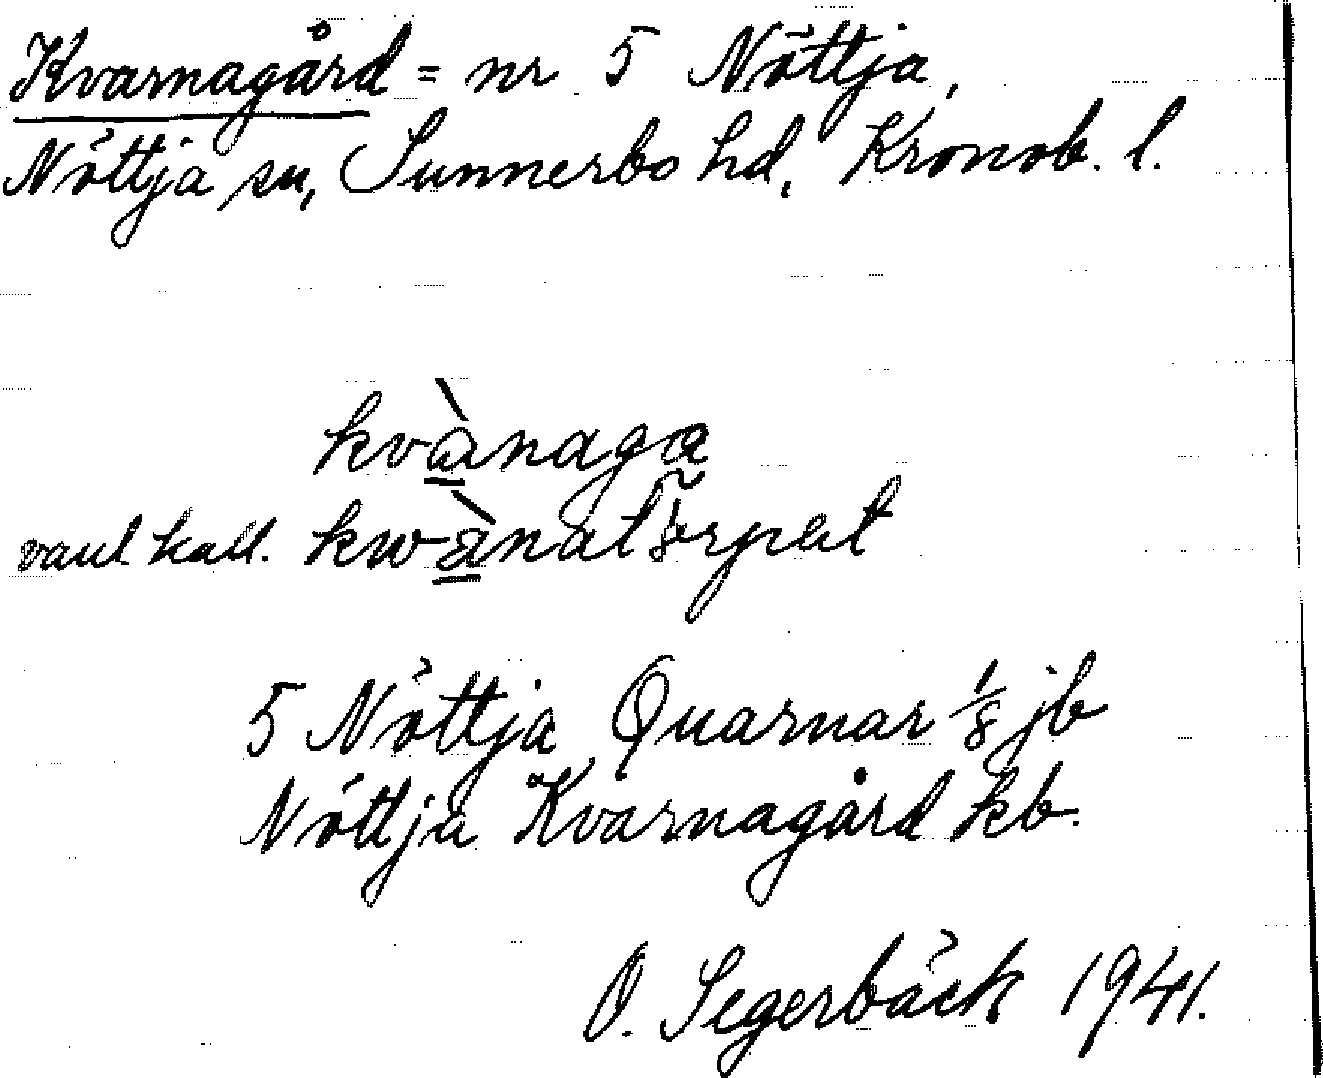 Kvarnagård = nr 5 Nöttja,
Nöttja sn, Sunnerbo hd, Kronob. l.
kvànaga
vanl. kall. kwànatörpet
5 Nöttja Quarnar 1/8 jb
Nöttja Kvarnagård kb.
O. Segerbäck 1941.